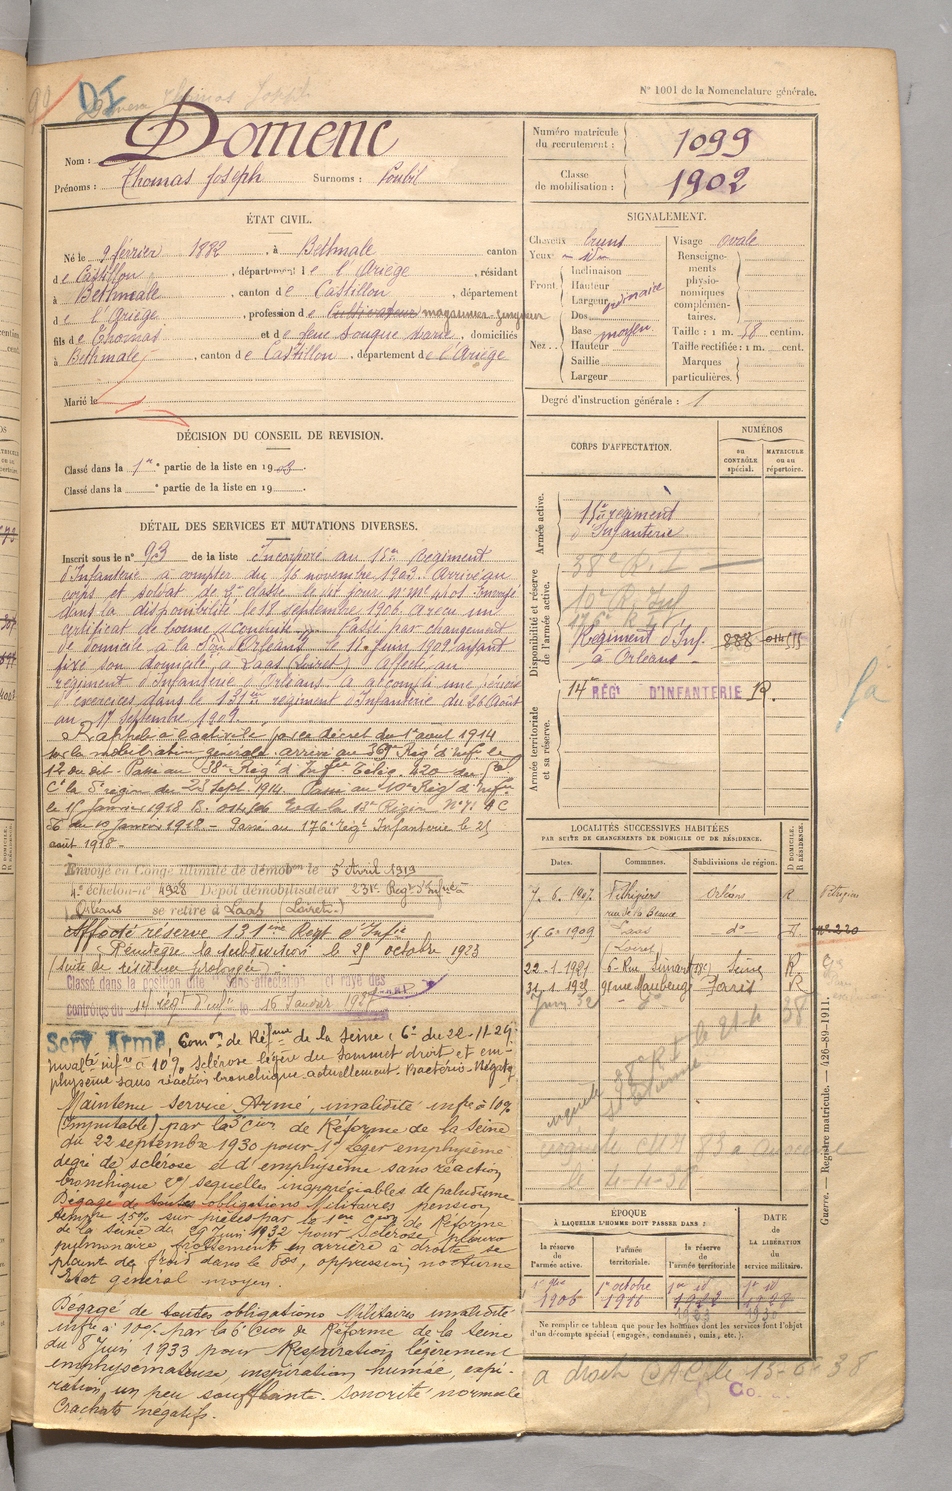 N° 1001 de la Nomenclature générale.
DI
Nom : Domenc
Prénoms : Thomas Joseph Surnoms : Poubil
Numéro matricule du recrutement : 1099
Classe de mobilisation : 1902
ÉTAT CIVIL.
Né le 9 février 1882, à Bethmale canton
de Castillon, département de l'Ariège, résidant
à Bethmale, canton de Castillon, département
de l'Ariège, profession de Cultivateur magasinier-
fils de Thomas et de feue Souque Marie, domiciliés
à Bethmale, canton de Castillon, département de l'Ariège
Marié le
SIGNALEMENT.
Cheveux bruns Visage ovale
Yeux — id —
Front. Inclinaison
Hauteur
Largeur ordinaire
Nez. Dos
Base moyen
Hauteur
Saillie
Largeur
Renseignements physionomiques complémentaires.
Taille : 1 m. 58 centim.
Taille rectifiée : 1 m. cent.
Marques particulières.
Degré d'instruction générale : 1
DÉCISION DU CONSEIL DE REVISION.
Classé dans la 1re partie de la liste en 1903.
Classé dans la ° partie de la liste en 19
DÉTAIL DES SERVICES ET MUTATIONS DIVERSES.
Inscrit sous le n° 93 de la liste Incorporé au 15e Régiment
d'Infanterie à compter du 16 novembre 1903. Arrivé au
corps et soldat de 2e classe le dit jour n° mle 4401. Envoyé
dans la disponibilité le 18 septembre 1906. A reçu un
certificat de bonne conduite. Passé par changement
de domicile à la Son d'Orléans le 11 Juin 1909 ayant
fixé son domicile à Laas (Loiret) Affecté au
régiment d'Infanterie d'Orléans. A accompli une période
d'exercices dans le 131e régiment d'Infanterie du 26 Août
au 17 Septembre 1909.
Rappelé à l'activité par le décret du 1er août 1914
sur la mobilisation générale. arrivé au 369e Rég. d'Infie le
12 du dit. Passé au 38e Rég d'Infie Télég. 420 du Gal
Ct la 5e région du 23 Sept. 1914. Passé au 10e Rég d'Infie
le 15 Janvier 1918
du 10 Janvier 1918 — Passé au 176e régt Infanterie le 25
août 1918.
Envoyé en Congé illimité de démobon le 5 Avril 1919
4e échelon n° 4928 Dépôt démobilisateur 231e Regt d'Infie à
Orléans se retire à Laas (Loiret)
Affecté réserve 131ème Regt d'Infie
Réintègre la subdivision le 25 octobre 1923
(suite de résidence prolongée)
Classé dans la position dite Sans-affectation et rayé des
contrôles du 14e régt d'infie le 16 Janvier 1927
Serv Armé, Comon de Réfme de la Seine (6e du 22-11-29:
Invalté infre à 10% sclérose légère du sommet droit et em-
physème sans réaction bronchique actuellement. Bactério-Négatif
Maintenu service Armé, invalidité infre à 10%
(imputable) par la 3e Cion de Réforme de la Seine
du 22 septembre 1930 pour 1° Léger emphysème
degré de sclérose et d'emphysème sans réaction
bronchique 2°/ sequelles inappréciables de paludisme
Dégagé de toutes obligations Militaires pension
tempre 15% sur pièces par la 1ère Cion de Réforme
de la Seine du 29 Juin 1932 pour Sclérose pleuro
pulmonaire, frottements en arrière à droite se
plaint de froid dans le dos, oppression nocturne
Etat général moyen.
Dégagé de toutes obligations Militaires invalidité
infre à 10% par la 6e Cion de Réforme de la Seine
du 8 Juin 1933 pour Respiration légèrement
emphysémateuse, inspiration humée, expi-
ration un peu soufflante. sonorité normale
Crachats négatifs.
CORPS D'AFFECTATION.
NUMÉROS
au CONTRÔLE spécial.
MATRICULE ou au répertoire.
Armée active.
15e régiment
d'Infanterie
Disponibilité et réserve de l'armée active.
38e R. I
10e R. Inf
176e R
Régiment d'Inf.
à Orléans
888
Armée territoriale et sa réserve.
14e RÉGt D'INFANTERIE R.
LOCALITÉS SUCCESSIVES HABITÉES
PAR SUITE DE CHANGEMENTS DE DOMICILE OU DE RÉSIDENCE.
Dates. Communes. Subdivisions de région. D DOMICILE. R RÉSIDENCE.
7. 6. 1907 Pithiviers Orléans R
rue de la Beauce
11-6-1909 Laas — do — D.
(Loiret)
22-1-1921 6 Rue (18e) Seine R
31-1-1929 91 rue Maubeuge Paris R
Juin 32
38e R I le 21-4-38
St Etienne
le 4-4-38
ÉPOQUE
À LAQUELLE L'HOMME DOIT PASSER DANS :
la réserve de l'armée active. l'armée territoriale. la réserve de l'armée territoriale
DATE de LA LIBÉRATION du service militaire.
1er 8bre 1906 1er octobre 1916 1er id 1922 1er id 1928
1923 1930
Ne remplir ce tableau que pour les hommes dont les services font l'objet
d'un décompte spécial (engagés, condamnés, omis, etc.).
a droit CAC, le 13-6-38
Guerre. — Registre matricule. — 426-89-1911.